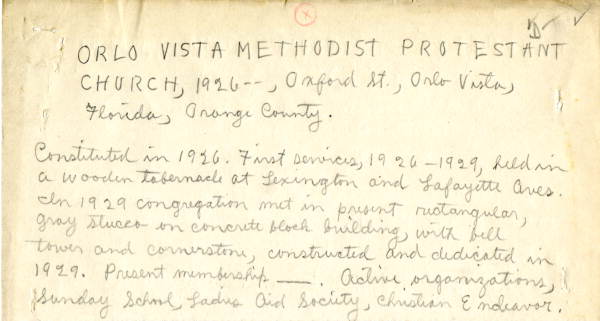 ORLO VISTA METHODIST PROTESTANT
CHURCH, 1926--, Oxford St., Orlo Vista,
Florida, Orange County.
Constituted in 1926. First services, 1926-1929, held in
a wooden tabernacle at Lexington and Lafayette Aves.
In 1929 congregation met in present rectangular,
gray stucco on concrete block building, with bell
tower and cornerstone, constructed and dedicated in
1929. Present membership ___. Active organizations,
Sunday School, Ladies Aid Society, Christian Endeavor.